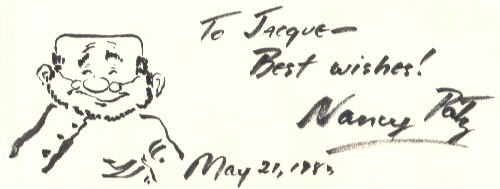 To Jacque—
Best wishes!
Nancy Patz
May 21, 1983